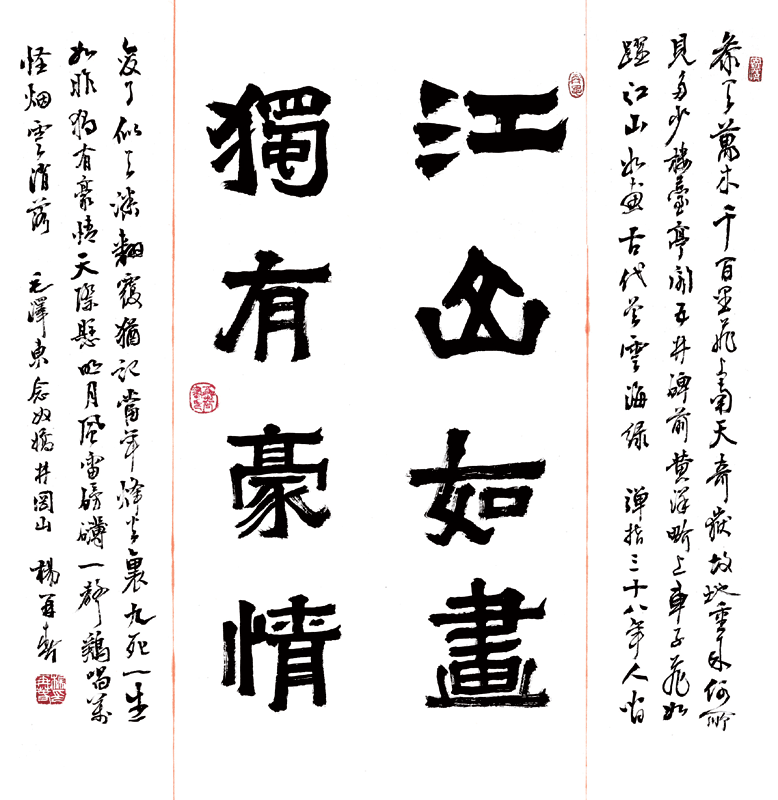 參天萬木千百里飛上南天奇嶽故地重來何所
見多少樓臺亭閣五井碑前黄洋畍上車子飛如
躍江山如畫古代曾雲海綠 彈指三十八年人間
江山如畫
獨有豪情
變了似天淵翻覆猶記當年烽火裏九死一生
如昨獨有豪情天際懸明月風雷磅礴一聲鷄唱萬
怪烟雲消落 毛澤東念奴嬌井岡山 楊再春